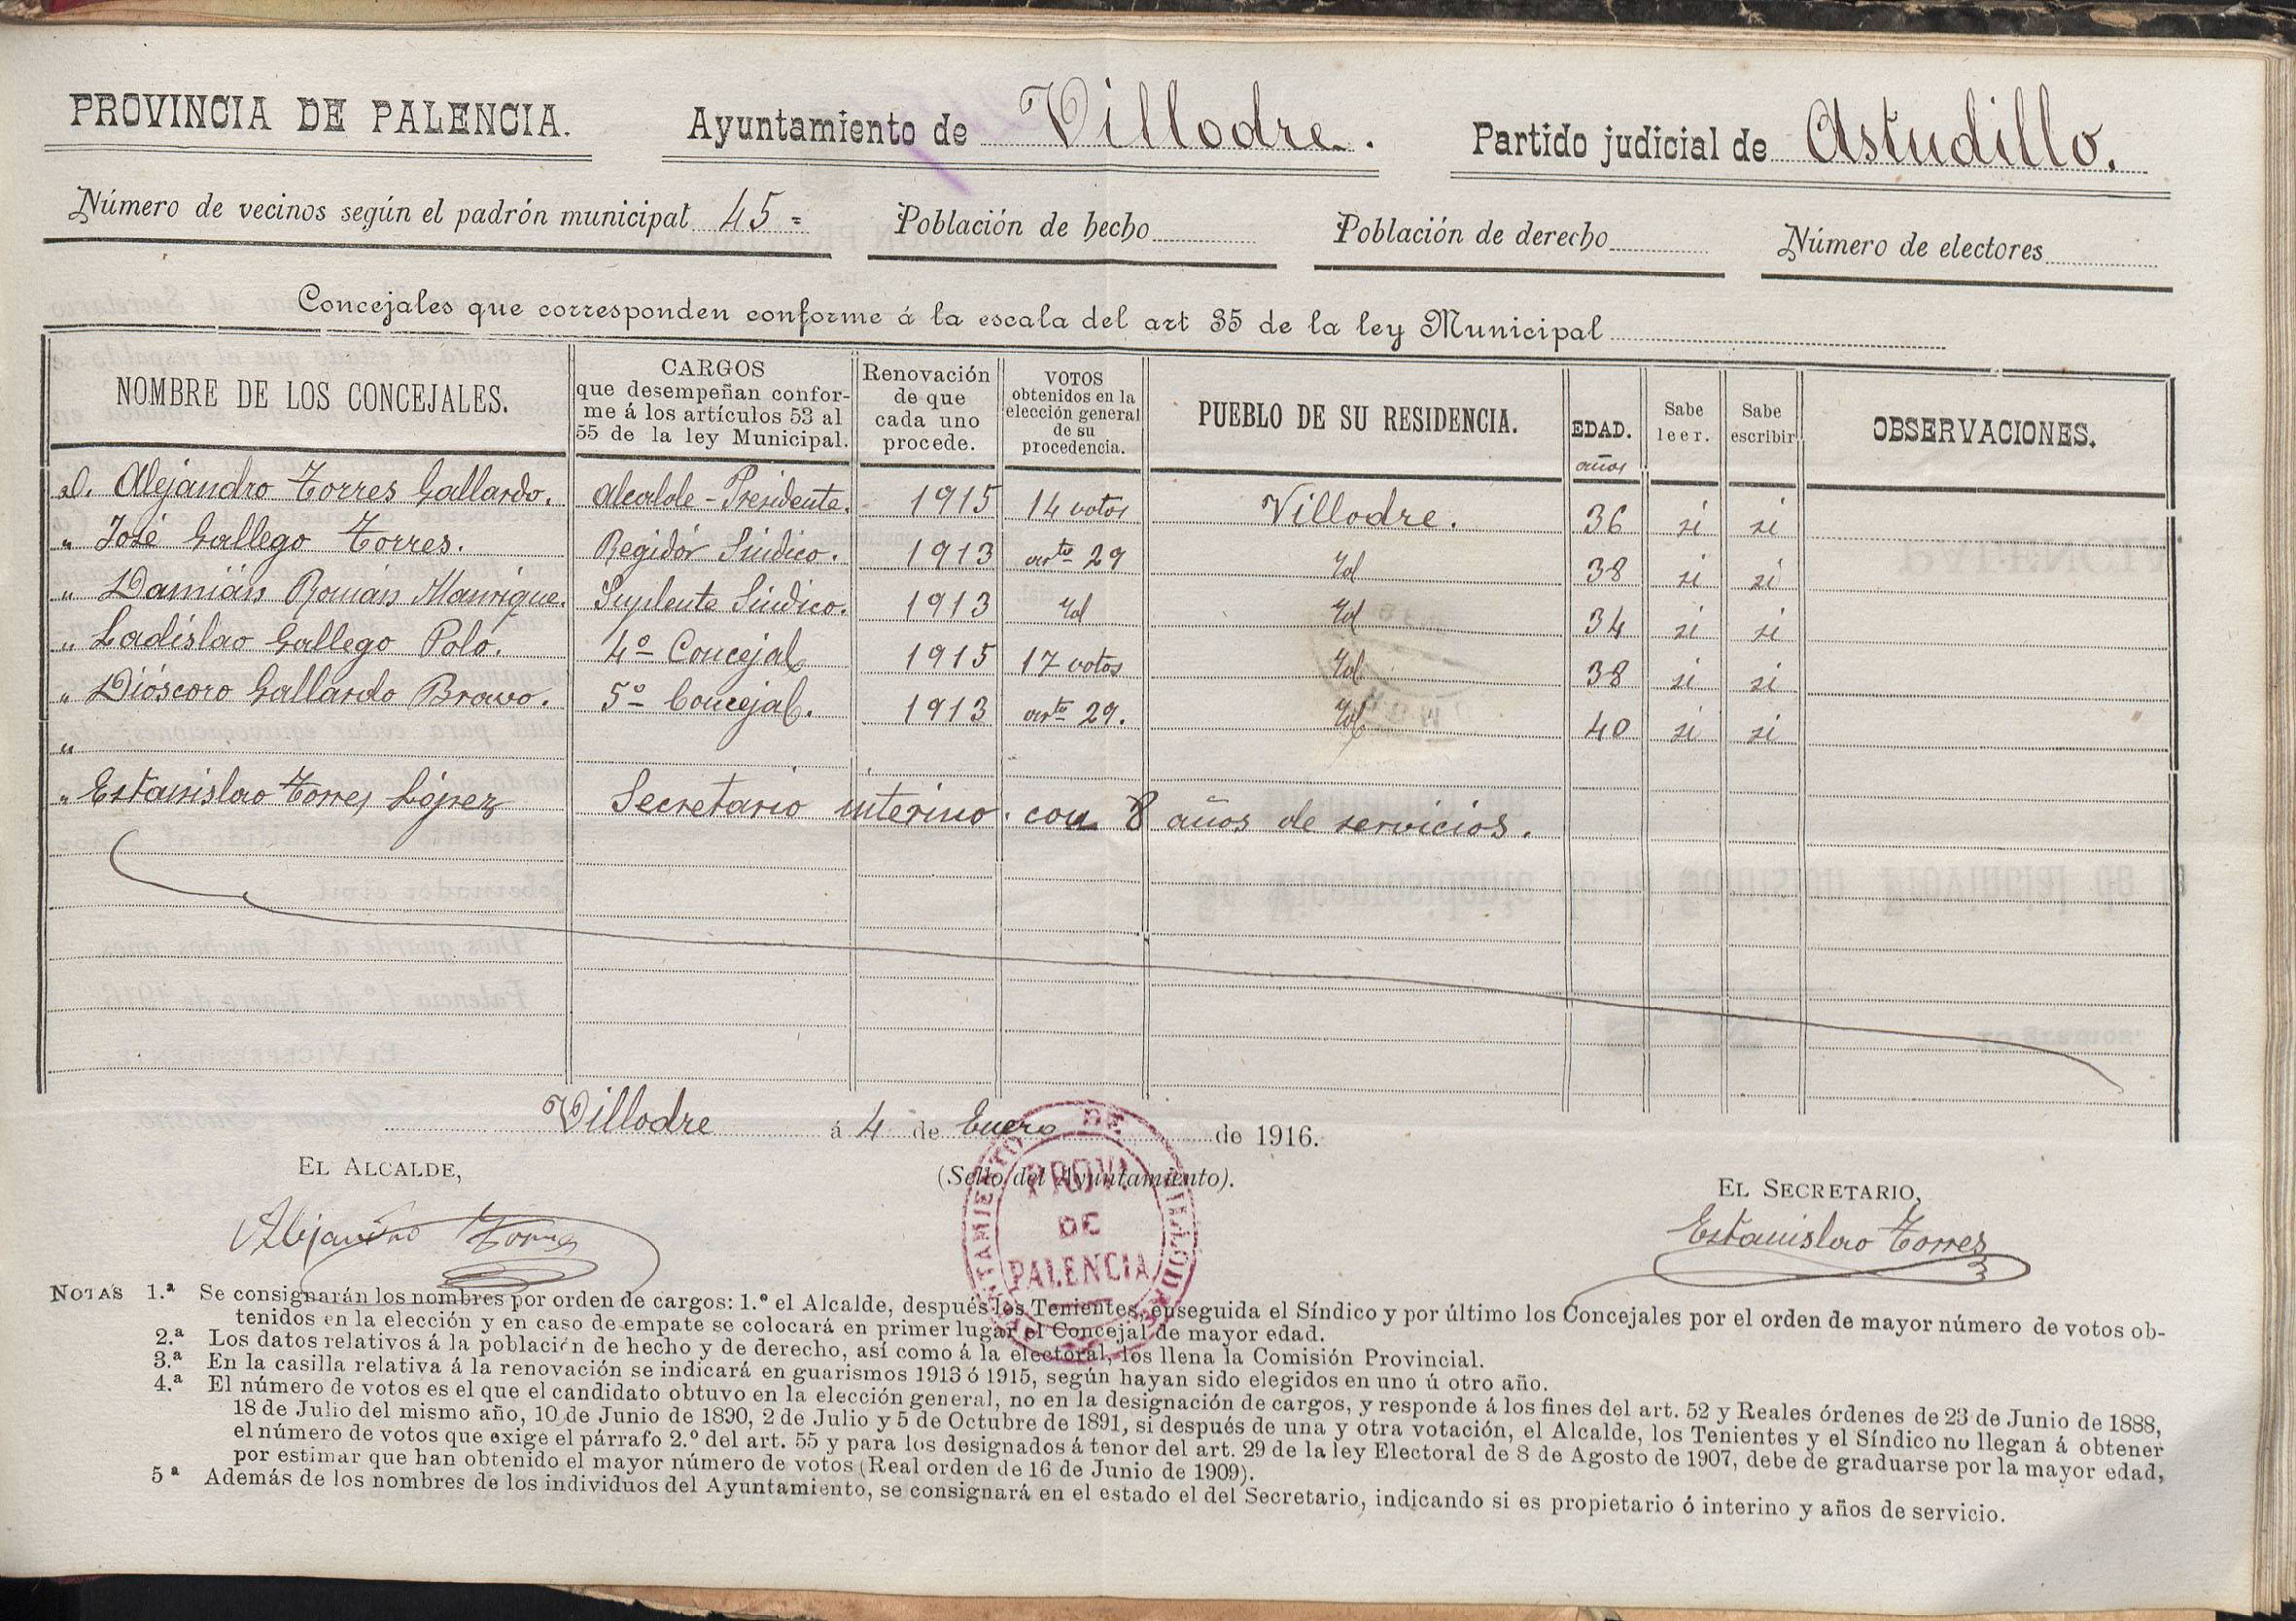 PROVINCIA DE PALENCIA. Ayuntamiento de Villodre. Partido judicial de Astudillo.
Número de vecinos según el padrón municipal 45 = Población de hecho Población de derecho Número de electores
Concejales que corresponden conforme á la escala del art 35 de la ley Municipal
NOMBRE DE LOS CONCEJALES. CARGOS que desempeñan confor- me á los artículos 53 al 55 de la ley Municipal. Renovación de que cada uno procede. VOTOS obtenidos en la elección general de su procedencia. PUEBLO DE SU RESIDENCIA. EDAD. Sabe leer. Sabe escribir OBSERVACIONES.
años
D. Alejandro Torres Gallardo. Alcalde-Presidente. 1915 14 votos Villodre. 36 si si
" José Gallego Torres. Regidór Síndico. 1913 arto 29 Id 38 si si
" Damián Román Manrique. Suplente Síndico. 1913 Id Id 34 si si
" Ladislao Gallego Polo. 4º Concejal 1915 17 votos Id 38 si si
" Dióscoro Gallardo Bravo. 5º Concejal. 1913 arto 29. Id 40 si si
"
" Estanislao Torres López Secretario interino con 8 años de servicios.
Villodre á 4 de Enero de 1916.
EL ALCALDE, (Sello del Ayuntamiento). EL SECRETARIO,
PROV.
DE
PALENCIA
Alejandro Torres Estanislao Torres
NOTAS 1.ª Se consignarán los nombres por orden de cargos: 1.º el Alcalde, después los Tenientes, enseguida el Síndico y por último los Concejales por el orden de mayor número de votos ob-
tenidos en la elección y en caso de empate se colocará en primer lugar el Concejal de mayor edad.
2.ª Los datos relativos á la población de hecho y de derecho, así como á la electoral, los llena la Comisión Provincial.
3.ª En la casilla relativa á la renovación se indicará en guarismos 1913 ó 1915, según hayan sido elegidos en uno ú otro año.
4.ª El número de votos es el que el candidato obtuvo en la elección general, no en la designación de cargos, y responde á los fines del art. 52 y Reales órdenes de 23 de Junio de 1888,
18 de Julio del mismo año, 10 de Junio de 1890, 2 de Julio y 5 de Octubre de 1891, si después de una y otra votación, el Alcalde, los Tenientes y el Síndico no llegan á obtener
el número de votos que exige el párrafo 2.º del art. 55 y para los designados á tenor del art. 29 de la ley Electoral de 8 de Agosto de 1907, debe de graduarse por la mayor edad,
por estimar que han obtenido el mayor número de votos (Real orden de 16 de Junio de 1909).
5ª Además de los nombres de los individuos del Ayuntamiento, se consignará en el estado el del Secretario, indicando si es propietario ó interino y años de servicio.